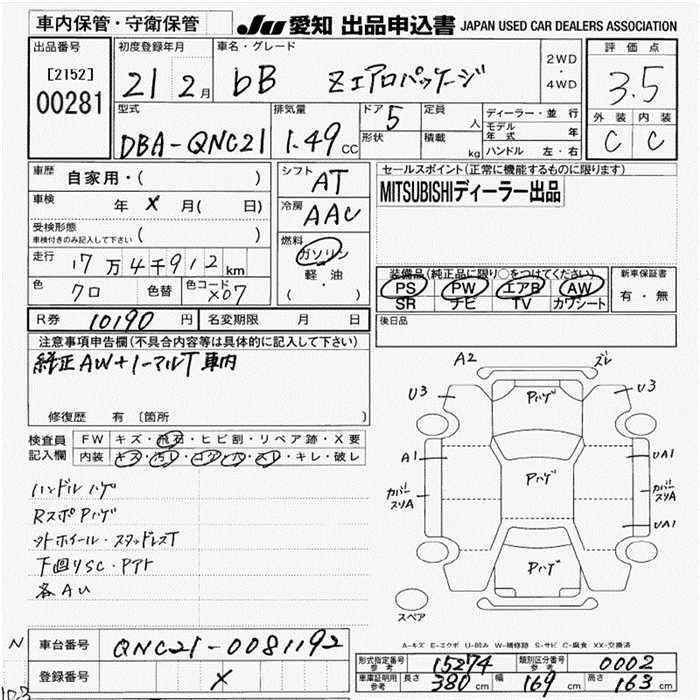 車内保管・守衛保管
JU 愛知 出品申込書 JAPAN USED CAR DEALERS ASSOCIATION
出品番号
[2152]
00281
初度登録年月
21 2月
車名・グレード
bB Zエアロパッケージ
2WD
・
4WD
評価点
3.5
外装 内装
C C
型式
DBA-QNC21
排気量
1.49 CC
ドア 5
形状
定員 人
積載 kg
ディーラー・並行
モデル年式 年
ハンドル 左・右
車歴 自家用・( )
車検 年 × 月( 日)
受検形態
車検付きのみ記入して下さい ( )
走行 17万4千912km
色 クロ 色替 色コード X07
シフト AT
冷房 AAC
燃料
ガソリン
軽・油
( ・ )
セールスポイント(正常に機能するものに限ります)
MITSUBISHIディーラー出品
装備品(純正品に限り○をつけてください)
PS PW エアB AW
SR ナビ TV カワシート
新車保証書
有・無
R券 10190 円 名変期限 月 日
後日品
注意事項申告欄(不具合内容等は具体的に記入して下さい)
純正AW+ノーマルT車内
修復歴 有 〔箇所
検査員記入欄
FW キズ・飛石・ヒビ割・リペア跡・X要
内装 キズ・汚レ・コゲ・穴・スレ・キレ・破レ
ハンドルハゲ
RスポPハゲ
外ホイール・スタッドレスT
下回りSC・Pアト
各AU
A2 ズレ
U3 Pハゲ U3
A1 UA1
カバースリA Pハゲ カバースリA
UA1
Pハゲ
スペア
A-キズ E-エクボ U-凹み W-補修跡 S-サビ C-腐食 XX-交換済
N 車台番号 QNC21-0081192
登録番号 ×
形式指定番号 参考 15274 類別区分番号 参考 0002
車庫証明用 参考 長さ 380cm 幅 169cm 高さ 163cm